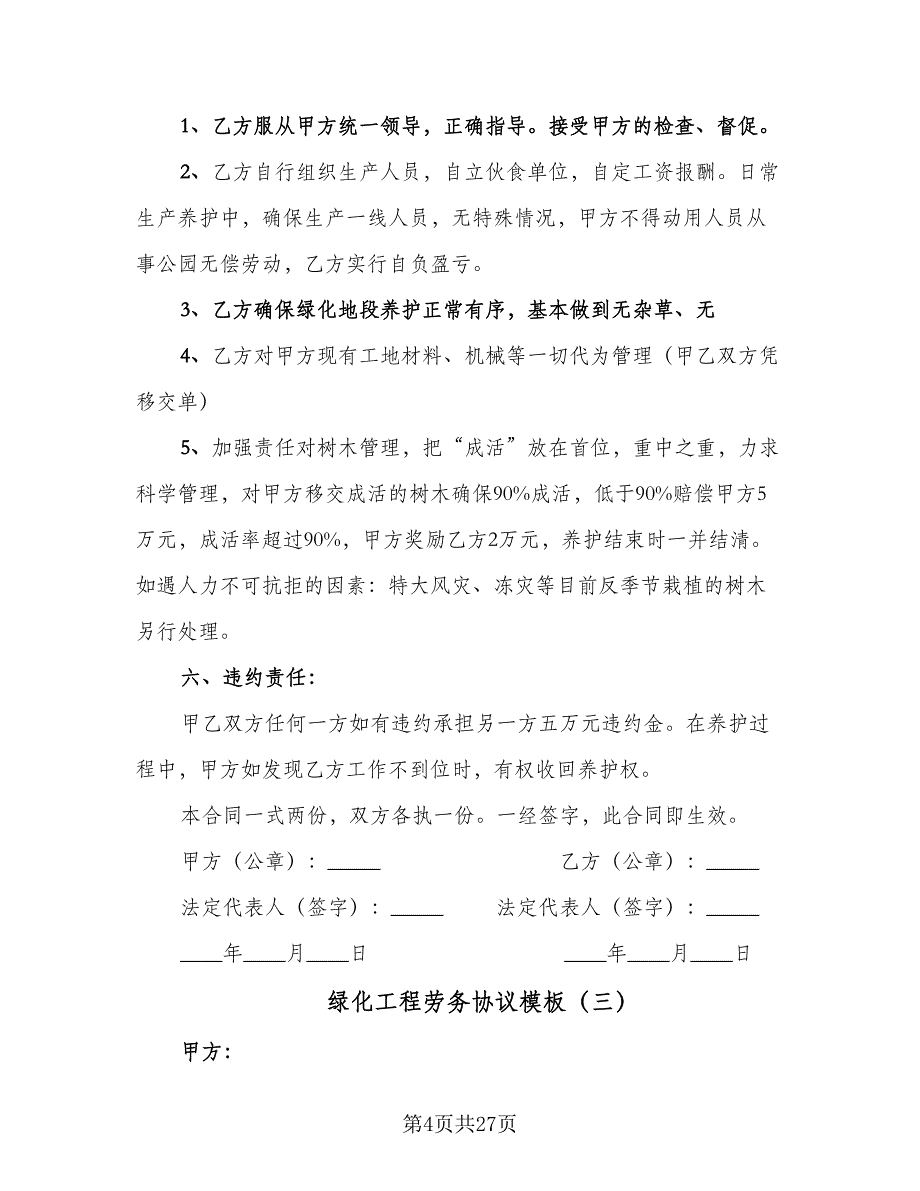 1、乙方服从甲方统一领导，正确指导。接受甲方的检查、督促。
2、乙方自行组织生产人员，自立伙食单位，自定工资报酬。日常
生产养护中，确保生产一线人员，无特殊情况，甲方不得动用人员从
事公园无偿劳动，乙方实行自负盈亏。
3、乙方确保绿化地段养护正常有序，基本做到无杂草、无
4、乙方对甲方现有工地材料、机械等一切代为管理（甲乙双方凭
移交单）
5、加强责任对树木管理，把“成活”放在首位，重中之重，力求
科学管理，对甲方移交成活的树木确保90%成活，低于90%赔偿甲方5
万元，成活率超过90%，甲方奖励乙方2万元，养护结束时一并结清。
如遇人力不可抗拒的因素：特大风灾、冻灾等目前反季节栽植的树木
另行处理。
六、违约责任：
甲乙双方任何一方如有违约承担另一方五万元违约金。在养护过
程中，甲方如发现乙方工作不到位时，有权收回养护权。
本合同一式两份，双方各执一份。一经签字，此合同即生效。
甲方（公章）：_____ 乙方（公章）：_____
法定代表人（签字）：_____ 法定代表人（签字）：_____
____年____月____日 ____年____月____日
绿化工程劳务协议模板（三）
甲方：
第4页共27页